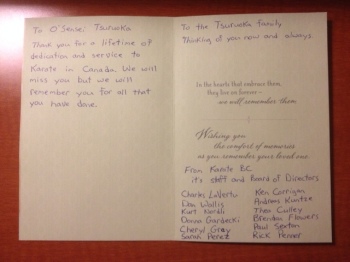 To O'Sensei Tsuruoka
Thank you for a lifetime of
dedication and service to
Karate in Canada. We will
miss you but we will
remember you for all that
you have done.
To the Tsuruoka family
Thinking of you now and always
In the hearts that embrace them,
they live on forever –
we will remember them.
Wishing you
the comfort of memories
as you remember your loved one.
From Karate BC
it's staff and Board of Directors
Charles LaVertu
Dan Wallis
Kurt Nordli
Donna Gardecki
Cheryl Gray
Sarah Perez
Ken Corrigan
Andreas Kuntze
Thea Culley
Brendan Flowers
Paul Sexton
Rick Penner